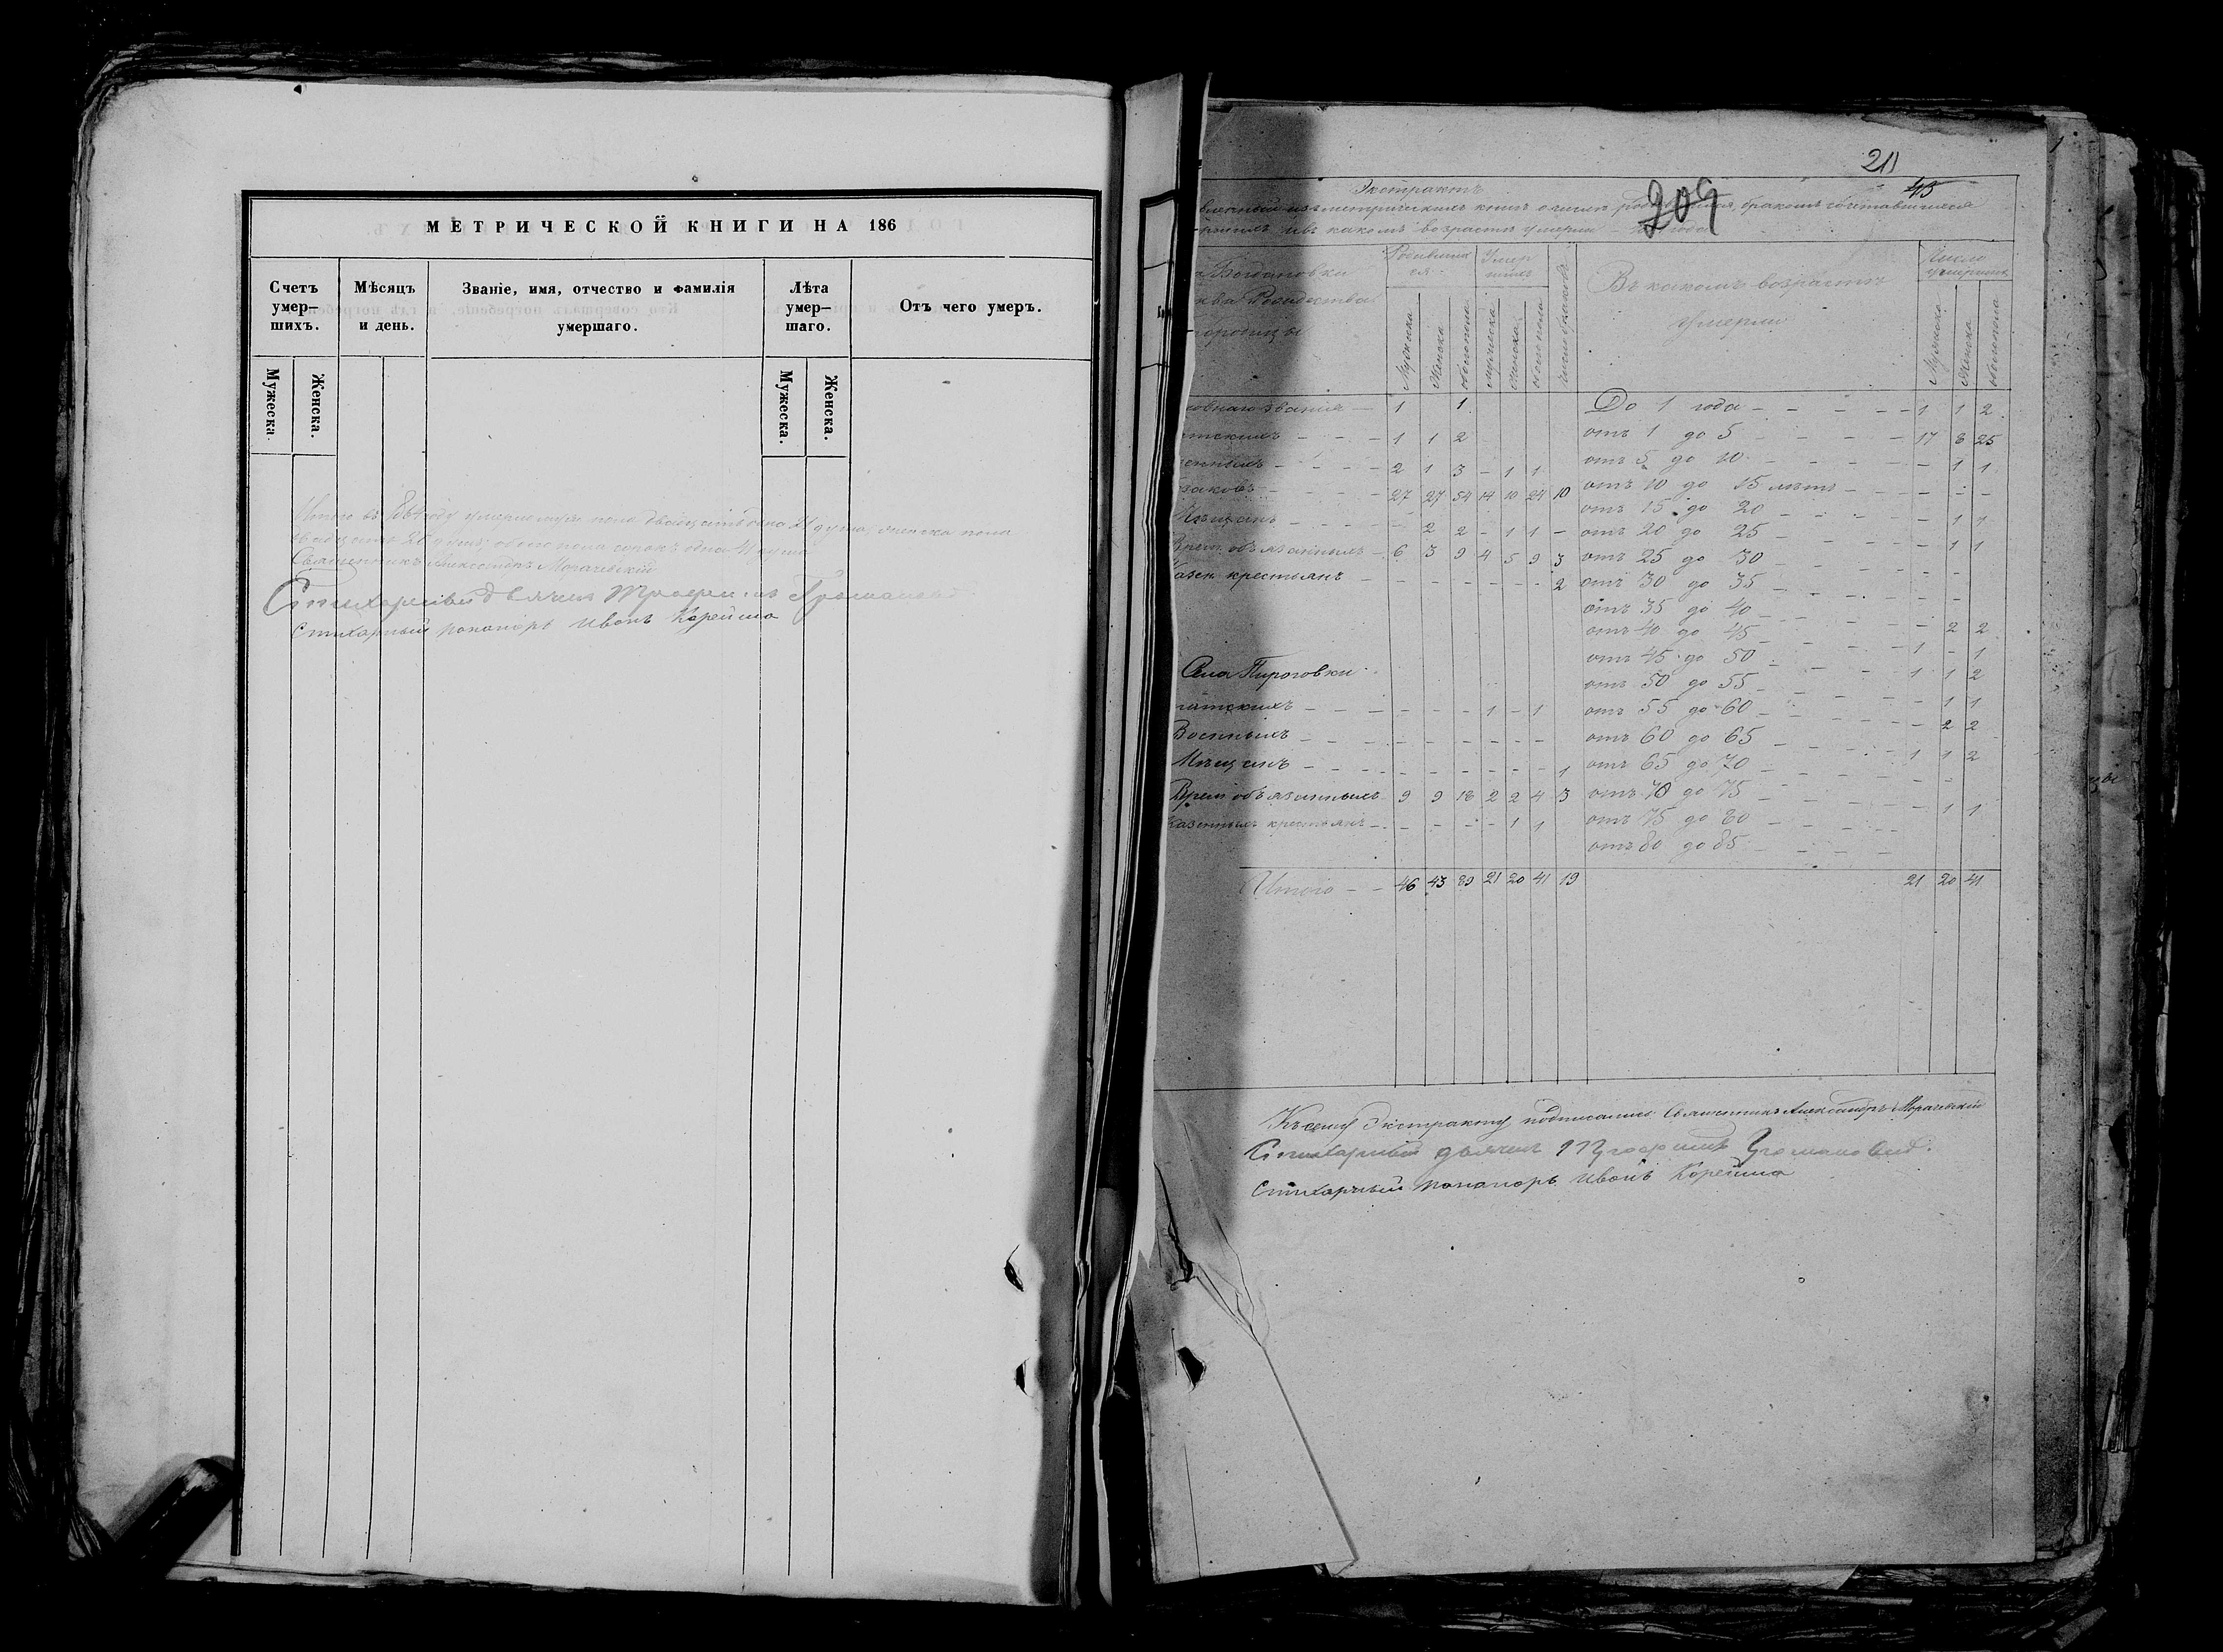 МЕТРИЧЕСКОЙ КНИГИ НА 186
Счетъ умер—шихъ.
Мѣсяцъ и день.
Званіе, имя, отчество и фамилія умершаго.
Лѣта умер—шаго.
Отъ чего умеръ.
Мужеска.
Женска.
Мужеска.
Женска.
Итого въ 1864 году умерло муж пола двадцать одна 21 душа, женска пола
двадцать 20 душъ; обоего пола сорокъ одна 41 душа
Священникъ Александръ Морачевскій
Стихарный дьячек
Стихарный пономорь Иванъ Корейша
211
209
43
Экстрактъ
метрическихъ книгъ о числѣ бракомъ сочетавшихся
въ какомъ возрастѣ умерли
Богдановки
Рождества
Родивших ся
Умер шихъ
число браковъ
Въ какомъ возрастѣ умерли
Число умершихъ
Мужеска
Женска
обоего пола
мужеска
женска
обоего пола
Мужеска
Женска
обоего пола
званія — 1 1
До 1 года — 1 1 2
1 1 2
отъ 1 до 5 — 17 8 25
2 1 3 - 1 1
отъ 5 до 10 — 1 1
27 27 54 14 10 24 10
отъ 10 до 15 лѣтъ — - -
Мѣщанъ — 2 2 - 1 1 -
отъ 15 до 20 — 1 1
Врем. обязанныхъ — 6 3 9 4 5 9 3
отъ 20 до 25 — 1 1
Казен крестьянъ — 2
отъ 25 до 30
отъ 30 до 35
отъ 35 до 40
отъ 40 до 45 — 2 2
отъ 45 до 50 — 1 - 1
Села Пироговки
отъ 50 до 55 — 1 1 2
1 - 1
отъ 55 до 60 — 1 1
Военныхъ
отъ 60 до 65 — 2 2
Мѣщанъ — 1
отъ 65 до 70 — 1 1 2
Врем обязанныхъ 9 9 18 2 2 4 3
отъ 70 до 75
Казенныхъ крестьянъ — 1 1
отъ 75 до 80 — 1 1
отъ 80 до 85
Итого — 46 43 89 21 20 41 19
21 20 41
Къ сему Экстракту подписались: Священникъ Александръ Морачевскій
Стихарный дьячек
Стихарный пономорь Иванъ Корейша